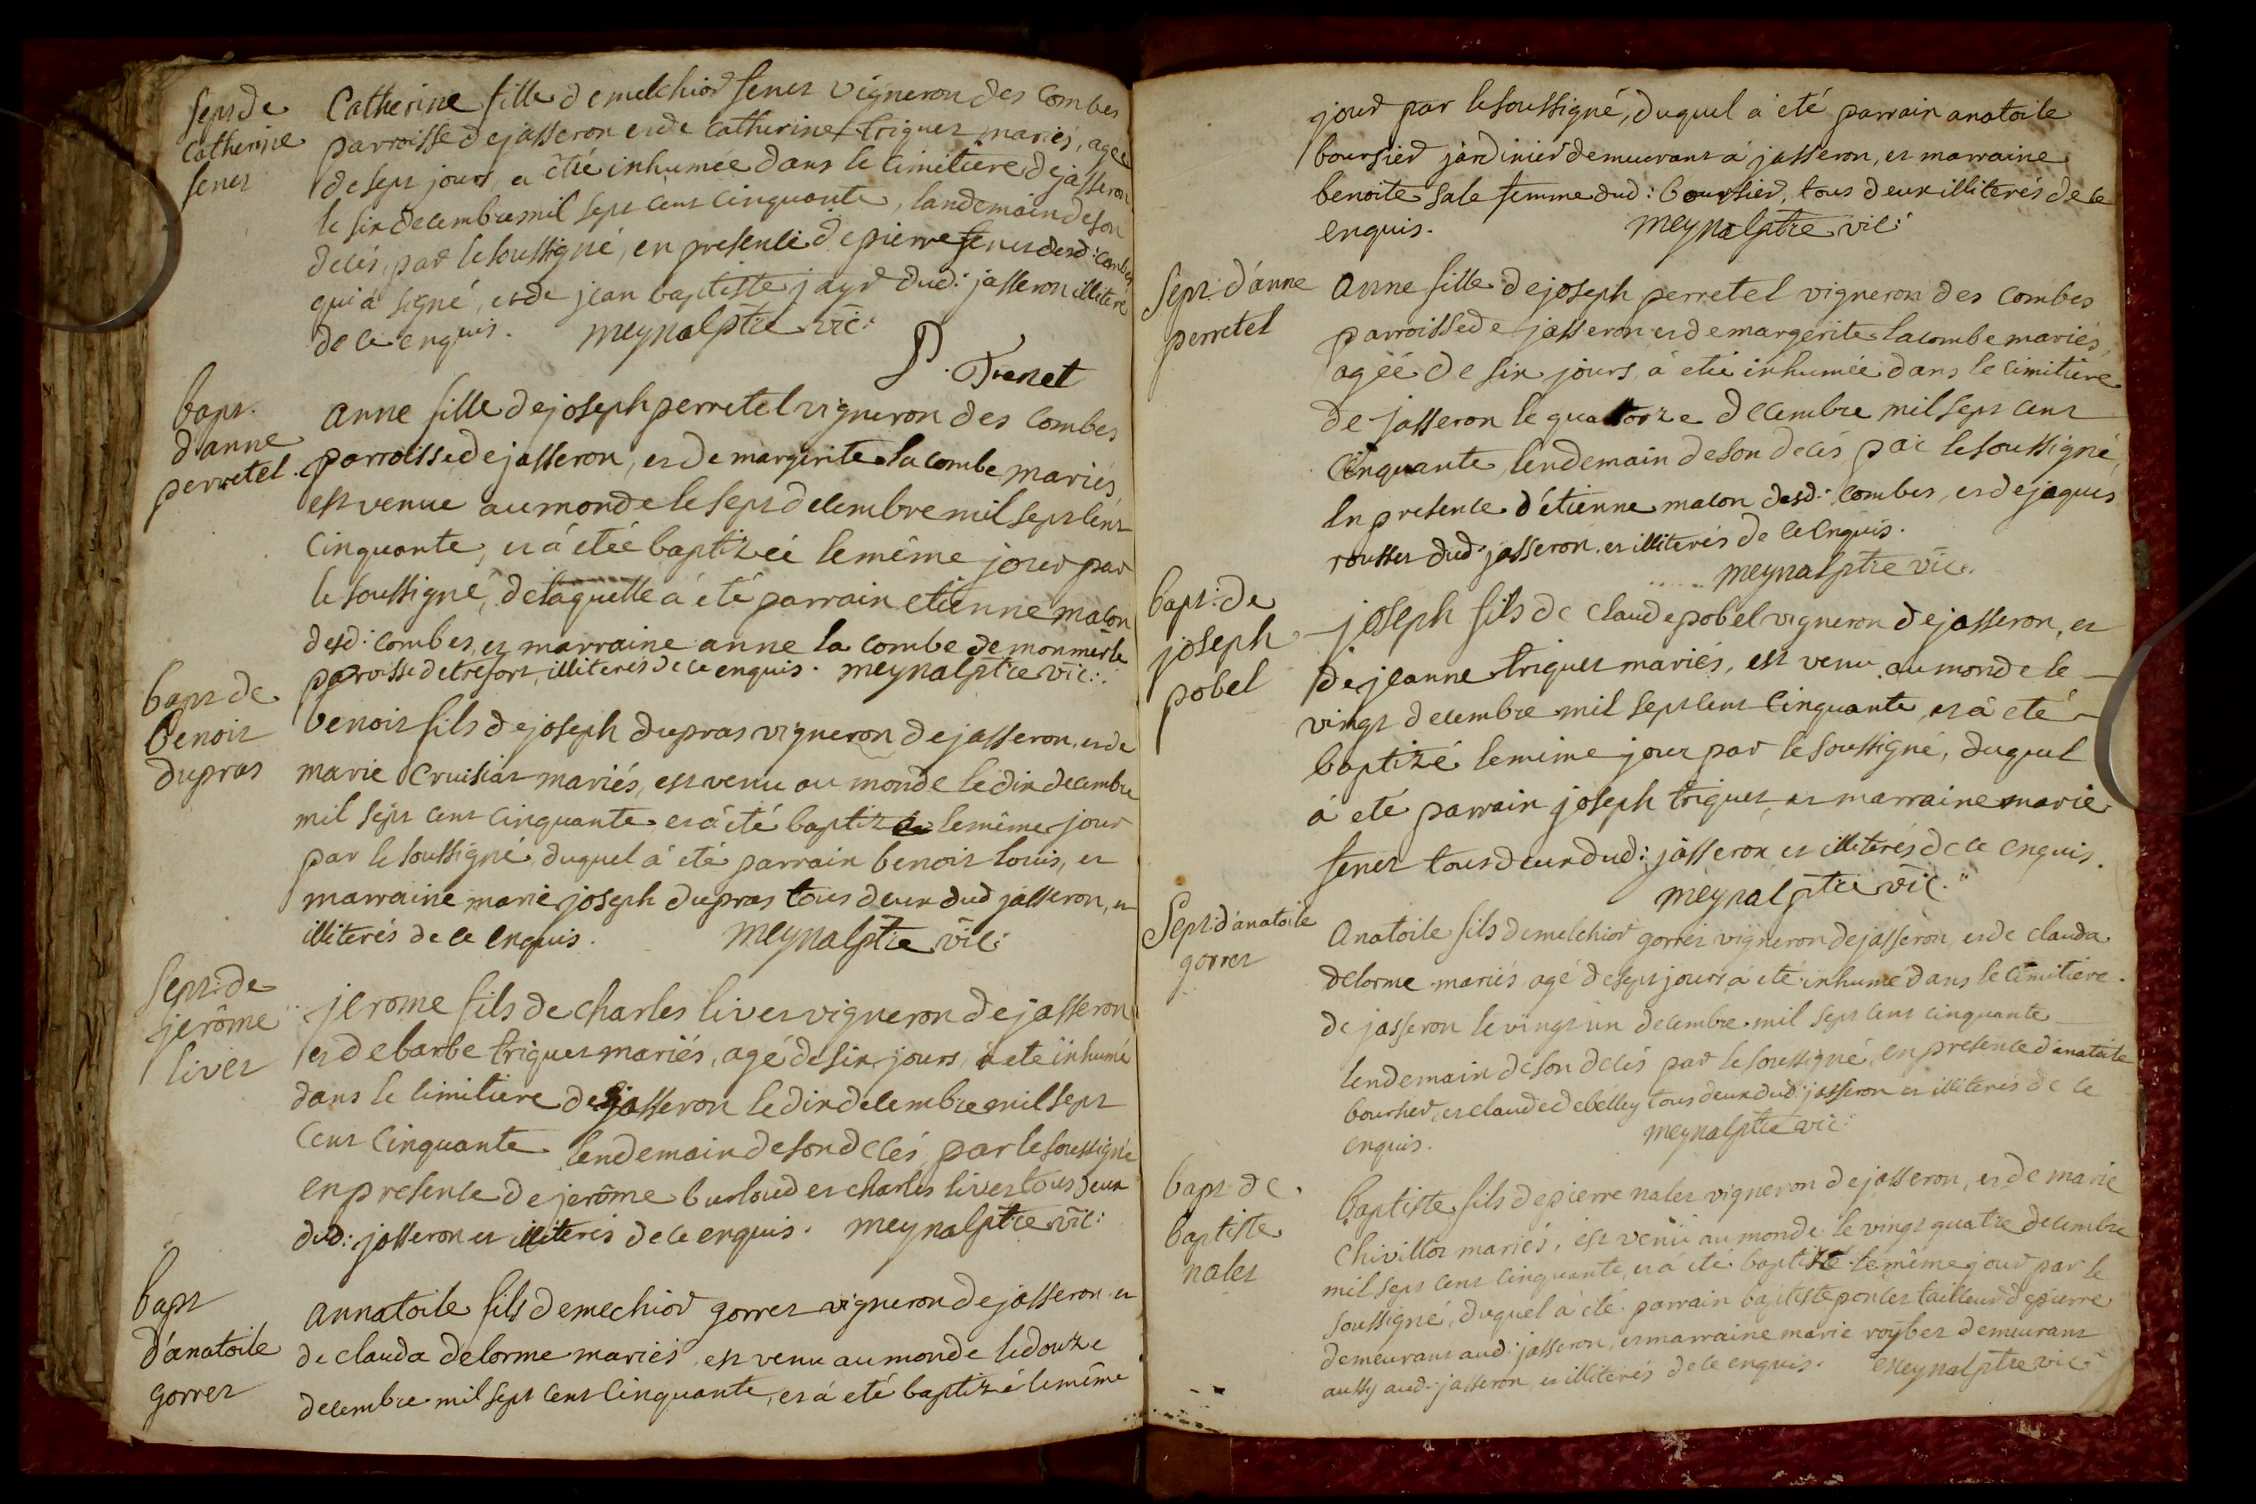 Sept de
Catherine
fenet
Catherine fille de melchior fenet vigneron des Combes
parroisse de jasseron et de Catherine triquet mariés, agée
de sept jours, a étée inhumée dans le cimitiére de jasseron
le six decembre mil sept cent cinquante, landemain de son
decés, par le soussigné, en presence de pierre fenet desd: combes
qui a signé, et de jean baptiste jayr dud: jasseron illiteré
de ce enquis. meynal ptre vic:
P. Fenet
bapt.
d'anne
perretel.
anne fille de joseph perretel vigneron des Combes
parroisse de jasseron, et de margerite la combe mariés,
est venue au monde le sept decembre mil sept cent
cinquante, et a étée baptizée le même jour par
le soussigné, de laquelle a été parrain etienne macon
desd: combes, et marraine anne la combe de monmerle
paroisse de trefort, illiterés de ce enquis. meynal ptre vic:
bapt de
benoit
dupras
benoit fils de joseph dupras vigneron de jasseron, et de
marie Cruisiat mariés, est venu au monde le dix decembre
mil sept cent cinquante et a été baptizé le même jour
par le soussigné, duquel a été parrain benoit louis, et
marraine marie joseph dupras tous deux dud jasseron, et
illiterés de ce enquis. meynal ptre vic:
Sept: de
jerôme
livet
jerome fils de charles livet vigneron de jasseron
et de barbe triquet mariés, agé de six jours, a eté inhumé
dans le cimitiere de jasseron le dix decembre mil sept
cent cinquante lendemain de son decés par le soussigné
en presence de jerôme burloud et charles livet tous deux
dud: jasseron et illiterés de ce enquis. meynal ptre vic:
bapt
d'anatoile
gorret
annatoile fils de mechior gorret vigneron de jasseron et
de clauda delorme mariés est venu au monde le douze
decembre mil sept cent cinquante, et a eté baptizé le même
jour par le soussigné, duquel a été parrain anatoile
boursier jardinier demeurant a jasseron, et marraine
benoite sale femme dud: boursier, tous deux illiterés de ce
enquis. meynal ptre vic:
Sept: d'anne
perretel
anne fille de joseph perretel vigneron des combes
parroisse de jasseron et de margerite lacombe mariés,
agée de six jours, a etée inhumée dans le cimitiere
de jasseron le quatorze decembre mil sept cent
cinquante, lendemain de son decés par le soussigné,
en presence d'étienne macon desd: combes, et de jaques
rousset dud: jasseron et illiterés de ce enquis.
meynal ptre vic.
bapt: de
joseph
pobel
joseph fils de claude pobel vigneron de jasseron, et
de jeanne triquet mariés, est venu au monde le
vingt decembre mil sept cent cinquante, et a eté
baptizé le même jour par le soussigné, duquel
a eté parrain joseph triquet, et marraine marie
fenet tous deux dud: jasseron et illiterés de ce enquis.
meynal ptre vic:
Sept: d'anatoile
gorret
Anatoile fils de melchior gorret vigneron de jasseron, et de clauda
delorme mariés agé de sept jours a eté inhumé dans le cimitiere
de jasseron le vingt un decembre mil sept cent cinquante
lendemain de son decés par le soussigné, en presence d'anatoile
boursier, et claude debélley tous deux dud: jasseron et illiterés de ce
enquis. meynal ptre vic:
bapt de
baptiste
nalet
baptiste fils de pierre nalet vigneron de jasseron, et de marie
Chivillot mariés, est venu au monde le vingt quatre decembre
mil sept cent cinquante, et a eté baptizé le même jour par le
soussigné, duquel a eté parrain baptiste poncet tailleur de pierre
demeurant aud: jasseron, et marraine marie roybet demeurant
aussy aud: jasseron, et illiterés de ce enquis. Meynal ptre vic: